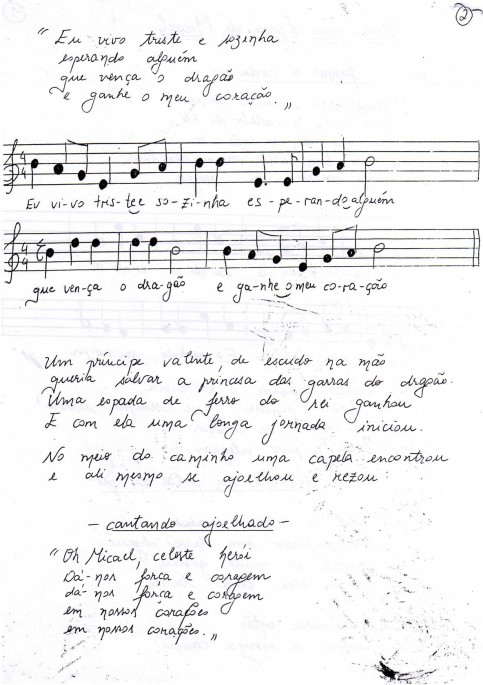 2
"Eu vivo triste e sozinha
esperando alguém
que vença o dragão
e ganhe o meu coração."
4/4
Eu vi-vo tris-tee so-zi-nha es-pe-ran-doalguém
4/4
que ven-ça o dra-gão e ga-nhe o meu co-ra-ção
Um príncipe valente, de escudo na mão
queria salvar a princesa das garras do dragão.
Uma espada de ferro do rei ganhou
E com ela uma longa jornada iniciou.
No meio do caminho uma capela encontrou
e ali mesmo se ajoelhou e rezou:
- cantando ajoelhado -
"Oh Micael, celeste herói
Dá-nos força e coragem
dá-nos força e coragem
em nossos corações
em nossos corações."